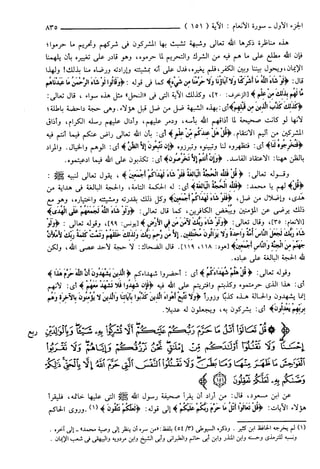 الجزء الأول - سورة الأنعام: الآية (١٥١) ٨٣٥
هذه مناظرة ذكرها الله تعالى وشبهة تشبث بها المشركون في شركهم وتحريم ما حرموا؛
فإن الله مطلع على ما هم فيه من الشرك والتحريم لما حرموه، وهو قادر على تغييره بأن يلهمنا
الإيمان، ويحول بيننا وبين الكفر، فلم يغيره، فدل على أنه بمشيئته وإرادته ورضاه منا بذلك! ولهذا
قال: ﴿لَوْ شَاءَ اللَّهُ مَا أَشْرَكْنَا وَلَا آبَاؤُنَا وَلَا حَرَّمْنَا مِن شَيْءٍ﴾ كما في قوله: ﴿وَقَالُوا لَوْ شَاءَ الرَّحْمَٰنُ مَا عَبَدْنَاهُم
مَّا لَهُم بِذَٰلِكَ مِنْ عِلْمٍ﴾ [الزخرف: ٢٠]، وكذلك الآية التي في «النحل» مثل هذه سواء، قال تعالى:
﴿كَذَٰلِكَ كَذَّبَ الَّذِينَ مِن قَبْلِهِم﴾ أي: بهذه الشبهة ضل من ضل قبل هؤلاء. وهي حجة داحضة باطلة؛
لأنها لو كانت صحيحة لما أذاقهم الله بأسه، ودمر عليهم، وأدال عليهم رسله الكرام، وأذاق
المشركين من أليم الانتقام. ﴿قُلْ هَلْ عِندَكُم مِّنْ عِلْمٍ﴾ أي: بأن الله تعالى راض عنكم فيما أنتم فيه
﴿فَتُخْرِجُوهُ لَنَا﴾ أي: فتظهروه لنا وتبينوه وتبرزوه ﴿إِن تَتَّبِعُونَ إِلَّا الظَّنَّ﴾ أي: الوهم والخيال. والمراد
بالظن ههنا: الاعتقاد الفاسد. ﴿وَإِنْ أَنتُمْ إِلَّا تَخْرُصُونَ﴾ أي: تكذبون على الله فيما ادعيتموه.
وقوله تعالى: ﴿قُلْ فَلِلَّهِ الْحُجَّةُ الْبَالِغَةُ فَلَوْ شَاءَ لَهَدَاكُمْ أَجْمَعِينَ﴾، يقول تعالى لنبيه ﷺ:
﴿قُلْ﴾ لهم يا محمد: ﴿فَلِلَّهِ الْحُجَّةُ الْبَالِغَةُ﴾ أي: له الحكمة التامة، والحجة البالغة في هداية من
هدى، وإضلال من ضل، ﴿فَلَوْ شَاءَ لَهَدَاكُمْ أَجْمَعِينَ﴾ وكل ذلك بقدرته ومشيئته واختياره، وهو مع
ذلك يرضى عن المؤمنين ويبغض الكافرين، كما قال تعالى: ﴿وَلَوْ شَاءَ اللَّهُ لَجَمَعَهُمْ عَلَى الْهُدَىٰ﴾
[الأنعام: ٣٥]، وقال تعالى: ﴿وَلَوْ شَاءَ رَبُّكَ لَآمَنَ مَن فِي الْأَرْضِ﴾ [يونس: ٩٩]، وقوله تعالى: ﴿وَلَوْ
شَاءَ رَبُّكَ لَجَعَلَ النَّاسَ أُمَّةً وَاحِدَةً وَلَا يَزَالُونَ مُخْتَلِفِينَ. إِلَّا مَن رَّحِمَ رَبُّكَ وَلِذَٰلِكَ خَلَقَهُمْ وَتَمَّتْ كَلِمَةُ رَبِّكَ لَأَمْلَأَنَّ
جَهَنَّمَ مِنَ الْجِنَّةِ وَالنَّاسِ أَجْمَعِينَ﴾ [هود: ١١٨، ١١٩]. قال الضحاك: لا حجة لأحد عصى الله، ولكن
لله الحجة البالغة على عباده.
وقوله تعالى: ﴿قُلْ هَلُمَّ شُهَدَاءَكُمُ﴾ أي: أحضروا شهداءكم ﴿الَّذِينَ يَشْهَدُونَ أَنَّ اللَّهَ حَرَّمَ هَٰذَا﴾
أي: هذا الذي حرمتموه وكذبتم وافتريتم على الله فيه ﴿فَإِن شَهِدُوا فَلَا تَشْهَدْ مَعَهُمْ﴾ أي: لأنهم
إنما يشهدون والحالة هذه كذبًا وزورًا ﴿وَلَا تَتَّبِعْ أَهْوَاءَ الَّذِينَ كَذَّبُوا بِآيَاتِنَا وَالَّذِينَ لَا يُؤْمِنُونَ بِالْآخِرَةِ وَهُم
بِرَبِّهِمْ يَعْدِلُونَ﴾ أي: يشركون به، ويجعلون له عديلًا.
﴿قُلْ تَعَالَوْا أَتْلُ مَا حَرَّمَ رَبُّكُمْ عَلَيْكُمْ أَلَّا تُشْرِكُوا بِهِ شَيْئًا وَبِالْوَالِدَيْنِ إِحْسَانًا وَلَا ربع
تَقْتُلُوا أَوْلَادَكُم مِّنْ إِمْلَاقٍ نَّحْنُ نَرْزُقُكُمْ وَإِيَّاهُمْ وَلَا تَقْرَبُوا الْفَوَاحِشَ مَا
ظَهَرَ مِنْهَا وَمَا بَطَنَ وَلَا تَقْتُلُوا النَّفْسَ الَّتِي حَرَّمَ اللَّهُ إِلَّا بِالْحَقِّ ذَٰلِكُمْ
وَصَّاكُم بِهِ لَعَلَّكُمْ تَعْقِلُونَ ١٥١﴾
عن ابن مسعود، قال: من أراد أن يقرأ صحيفة رسول الله ﷺ التي عليها خاتمه، فليقرأ
هؤلاء الآيات: ﴿قُلْ تَعَالَوْا أَتْلُ مَا حَرَّمَ رَبُّكُمْ عَلَيْكُمْ﴾ إلى قوله: ﴿لَعَلَّكُمْ تَتَّقُونَ﴾ (١). وروى الحاكم
(١) لم يخرجه الحافظ ابن كثير. وذكره السيوطي (٣/ ٥٤) بلفظ: «من سره أن ينظر إلى وصية محمد» - إلى آخره.
ونسبه للترمذي وحسنه وابن المنذر وابن أبي حاتم والطبراني وأبي الشيخ وابن مردويه والبيهقي في شعب الإيمان.